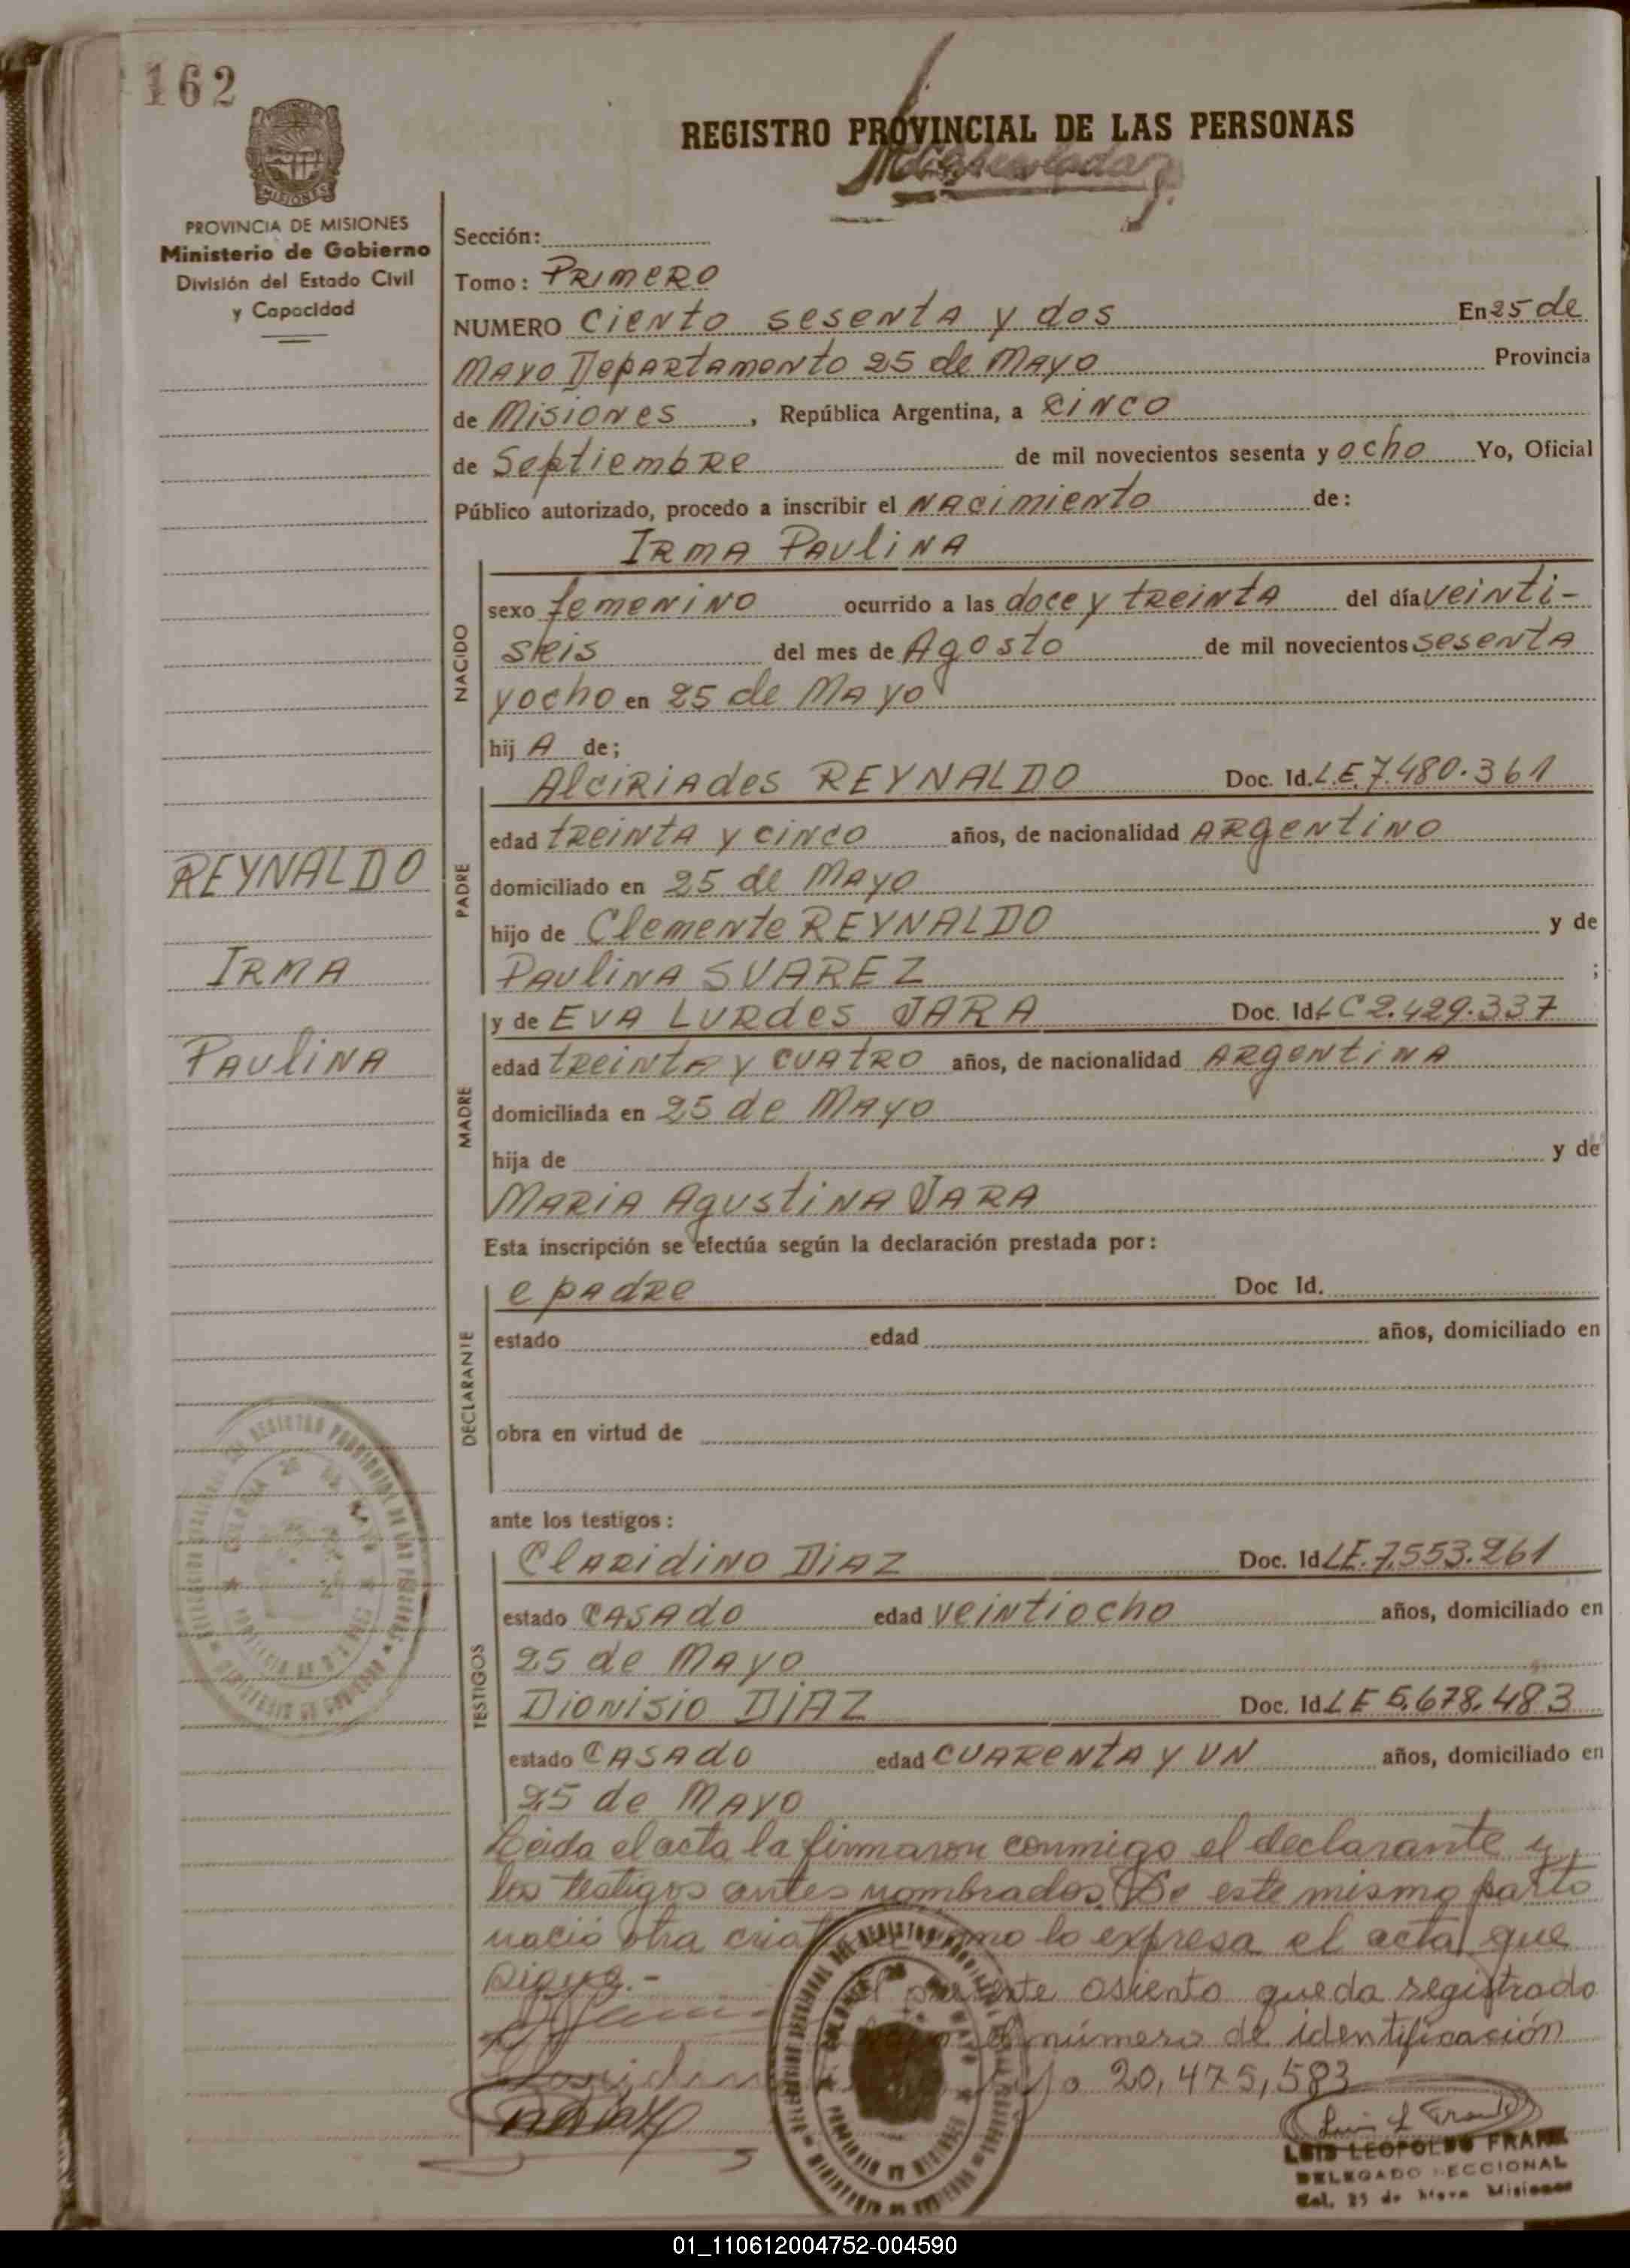 162
REGISTRO PROVINCIAL DE LAS PERSONAS
MISIONES
PROVINCIA DE MISIONES
Ministerio de Gobierno
División del Estado Civil
y Capacidad
Sección:
Tomo: PRIMERO
NUMERO Ciento sesenta y dos En 25 de
Mayo Departamento 25 de Mayo Provincia
de Misiones, República Argentina, a cinco
de Septiembre de mil novecientos sesenta y ocho Yo, Oficial
Público autorizado, procedo a inscribir el nacimiento de:
IRMA PAULINA
NACIDO
sexo femenino ocurrido a las doce y treinta del día veinti-
seis del mes de Agosto de mil novecientos sesenta
y ocho en 25 de Mayo
hij A de;
PADRE
Alciriades REYNALDO Doc. Id. L.E. 7.480.361
edad treinta y cinco años, de nacionalidad Argentino
domiciliado en 25 de Mayo
hijo de Clemente REYNALDO y de
Paulina SUAREZ ;
REYNALDO
IRMA
PAULINA
MADRE
y de EVA LURdes JARA Doc. Id. L C 2.429.337
edad treinta y cuatro años, de nacionalidad Argentina
domiciliada en 25 de Mayo
hija de y de
MARIA AgustiNA JARA
Esta inscripción se efectúa según la declaración prestada por:
DECLARANTE
e padre Doc Id.
estado edad años, domiciliado en
obra en virtud de
ante los testigos:
TESTIGOS
Claridino DIAZ Doc. Id L.E. 7.553.261
estado CASADO edad veintiocho años, domiciliado en
25 de Mayo
Dionisio DIAZ Doc. Id. L E 5.678.483
estado CASADO edad cuarenta y un años, domiciliado en
25 de Mayo
Leida el acta la firmaron conmigo el declarante y
los testigos antes nombrados. De este mismo parto
nació otra como lo expresa el acta que
sigue.-
El presente asiento queda registrado
número de identificación
20,475,583
LUIS LEOPOLDO FRANK
DELEGADO SECCIONAL
Col. 25 de Mayo Misiones
01_110612004752-004590